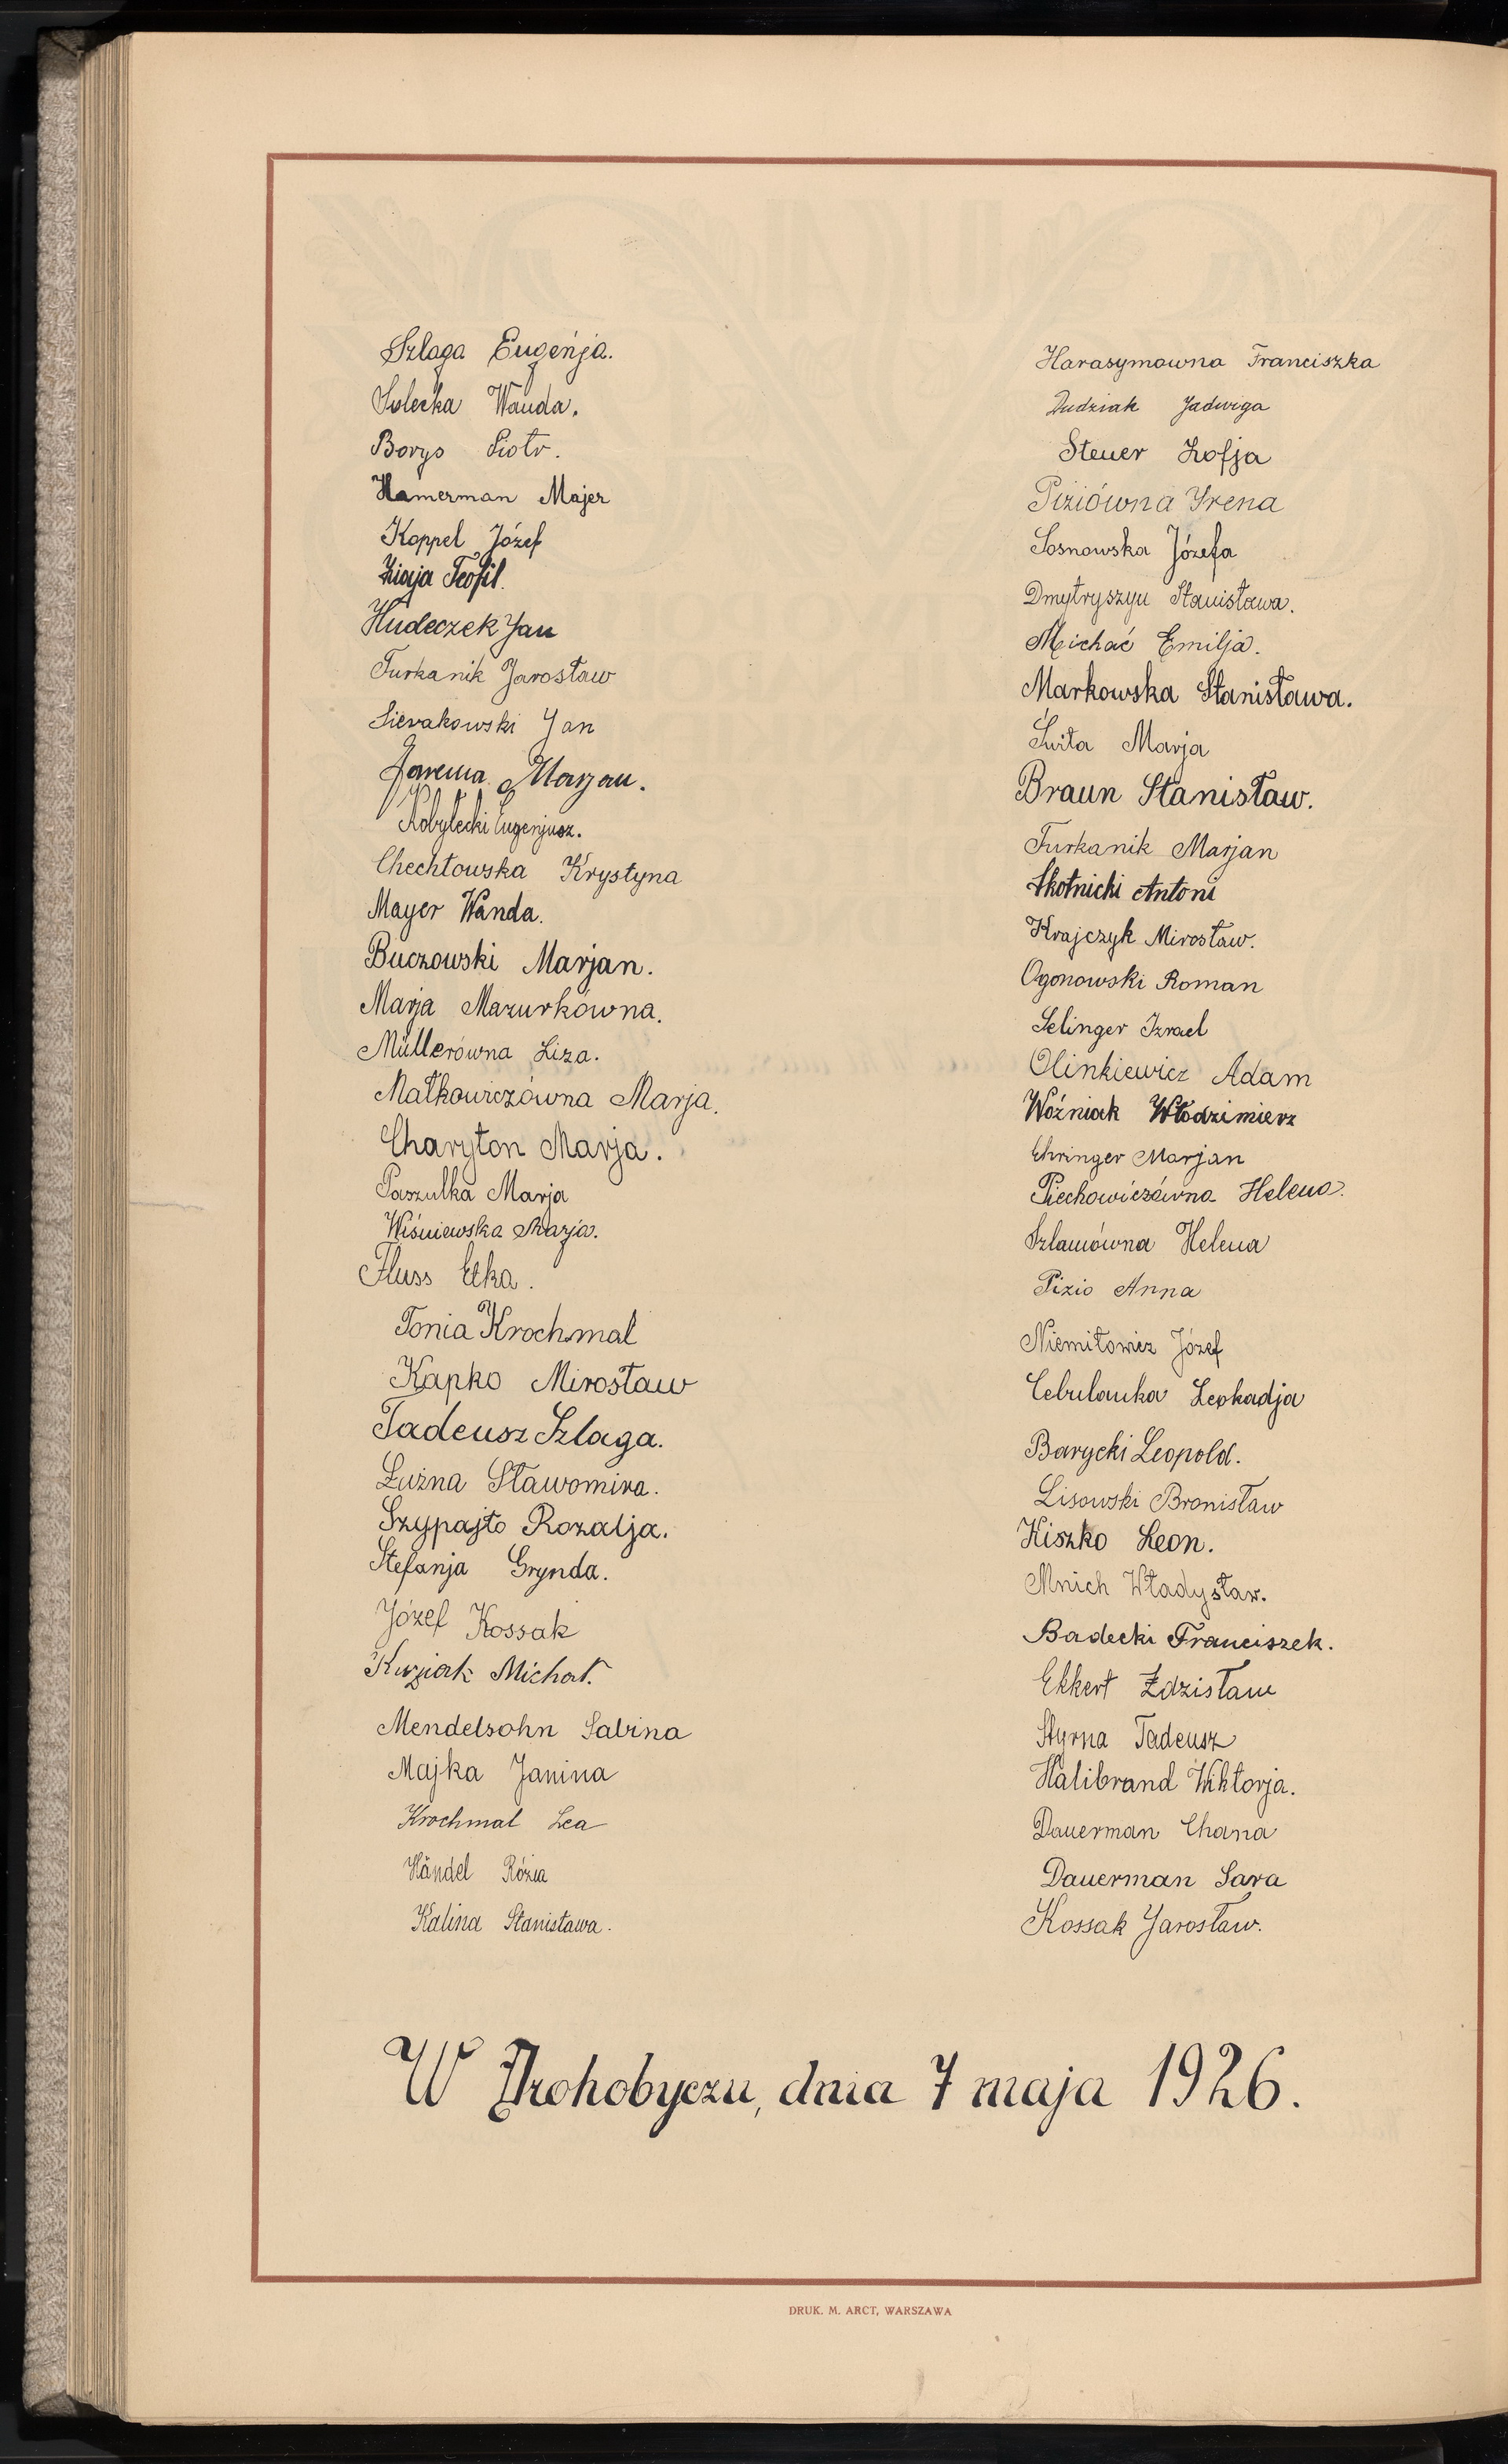 Szlaga Eugenja.
Solecka Wanda.
Borys Piotr.
Hamerman Majer
Koppel Józef
Ziaja Teofil.
Hudeczek Jan
Turkanik Jarosław
Sierakowski Jan
Jarema Marjan.
Kobyłecki Eugenjusz.
Chechłowska Krystyna
Mayer Wanda.
Buczowski Marjan.
Marja Mazurkówna.
Müllerówna Liza.
Małkowiczówna Marja.
Charyton Marja.
Paszulka Marja
Wiśniewska Marja.
Fluss Etka.
Tonia Krochmal
Kapko Mirosław
Tadeusz Szlaga.
Luźna Sławomira.
Szypajło Rozalja.
Stefanja Grynda.
Józef Kossak
Kuziak Michał.
Mendelsohn Sabina
Majka Janina
Krochmal Lea
Händel Róża
Kalina Stanisława.
Harasymowna Franciszka
Dudziak Jadwiga
Steuer Zofja
Piziówna Irena
Sosnowska Józefa
Dmytryszyn Stanisława.
Michać Emilja.
Markowska Stanisława.
Świta Marja
Braun Stanisław.
Turkanik Marjan
Skotnicki Antoni
Krajczyk Mirosław.
Ogonowski Roman
Selinger Izrael
Olinkiewicz Adam
Woźniak Włodzimierz
Ehringer Marjan
Piechowiczówna Helena.
Szlamówna Helena
Pizio Anna
Niemiłowicz Józef
Cebulanka Leokadja
Barycki Leopold.
Lisowski Bronisław
Kiszko Leon.
Mnich Władysław.
Badecki Franciszek.
Ekkert Zdzisław
Styrna Tadeusz
Halibrand Wiktorja.
Dauerman Chana
Dauerman Sara
Kossak Jarosław.
W Drohobyczu, dnia 7 maja 1926.
DRUK. M. ARCT, WARSZAWA